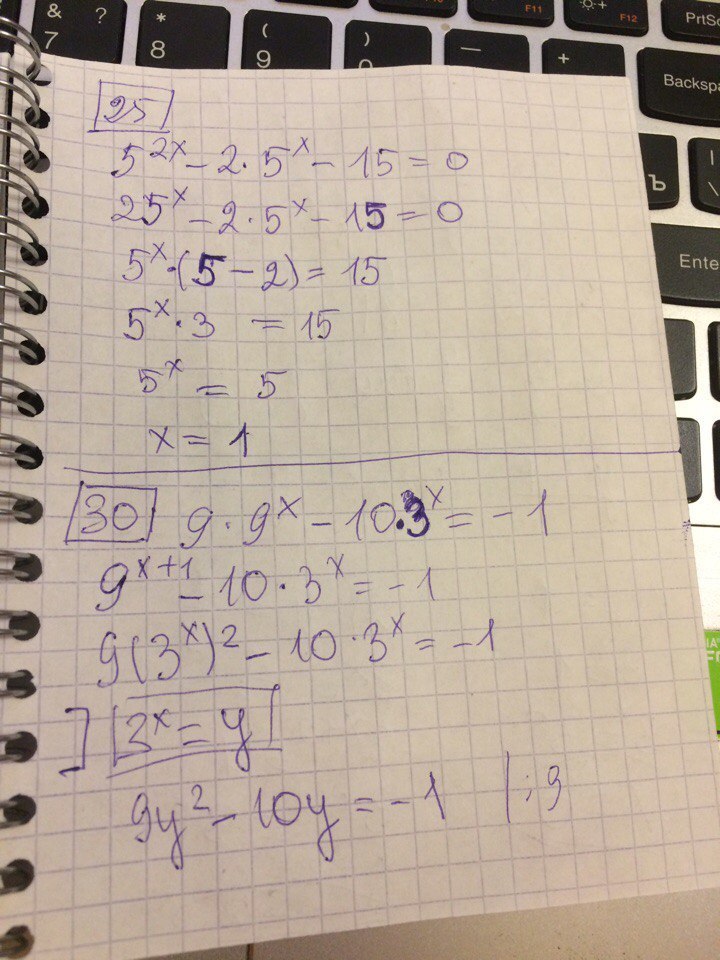 & 7 ?
* 8
( 9
) 0
—
+
F11
F12
PrtSc
Backspa
Ъ
Enter
25
5^{2x} - 2 · 5^x - 15 = 0
25^x - 2 · 5^x - 15 = 0
5^x · (5 - 2) = 15
5^x · 3 = 15
5^x = 5
x = 1
30 9 · 9^x - 10 · 3^x = -1
9^{x+1} - 10 · 3^x = -1
9(3^x)^2 - 10 · 3^x = -1
] 3^x = y
9y^2 - 10y = -1 | : 9